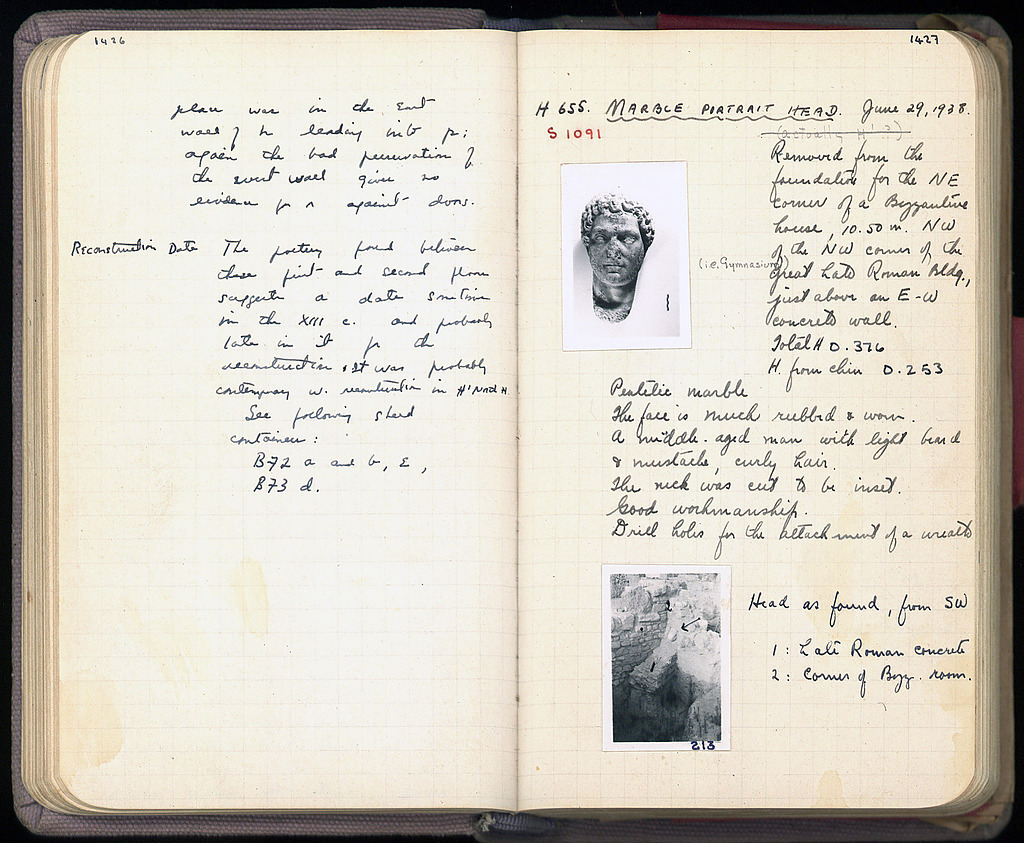 1426
place was in the East
wall of h leading into p;
again the bad preservation of
the east wall gives no
evidence for or against doors.
Reconstruction Date The pottery found between
these first and second floors
suggests a date sometime
in the XIII c. and probably
late in it for the
reconstruction. It was probably
contemporary w. reconstruction in H' North H
See following sherd
containers:
B72 a and b, Σ,
B73 d.
1427
H 655. MARBLE PORTRAIT HEAD. June 29, 1938.
S 1091
(actually H'.?)
Removed from the
foundation for the NE
corner of a Byzantine
house, 10.50 m. NW
of the NW corner of the
(i.e. Gymnasium) great Late Roman Bldg.,
just above an E-W
concrete wall.
Total H 0.376
H. from chin 0.253
Pentelic marble
The face is much rubbed & worn.
A middle-aged man with light beard
& mustache, curly hair.
The neck was cut to be inset.
Good workmanship.
Drill holes for the attachment of a wreath
Head as found, from SW
1: Late Roman concrete
2: Corner of Byz. room.
2
1
213